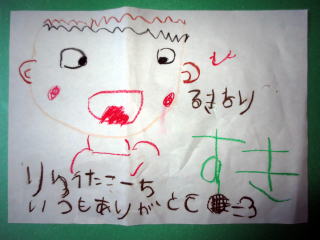 るきより
すき
りゅうたこーち
いつもありがとう